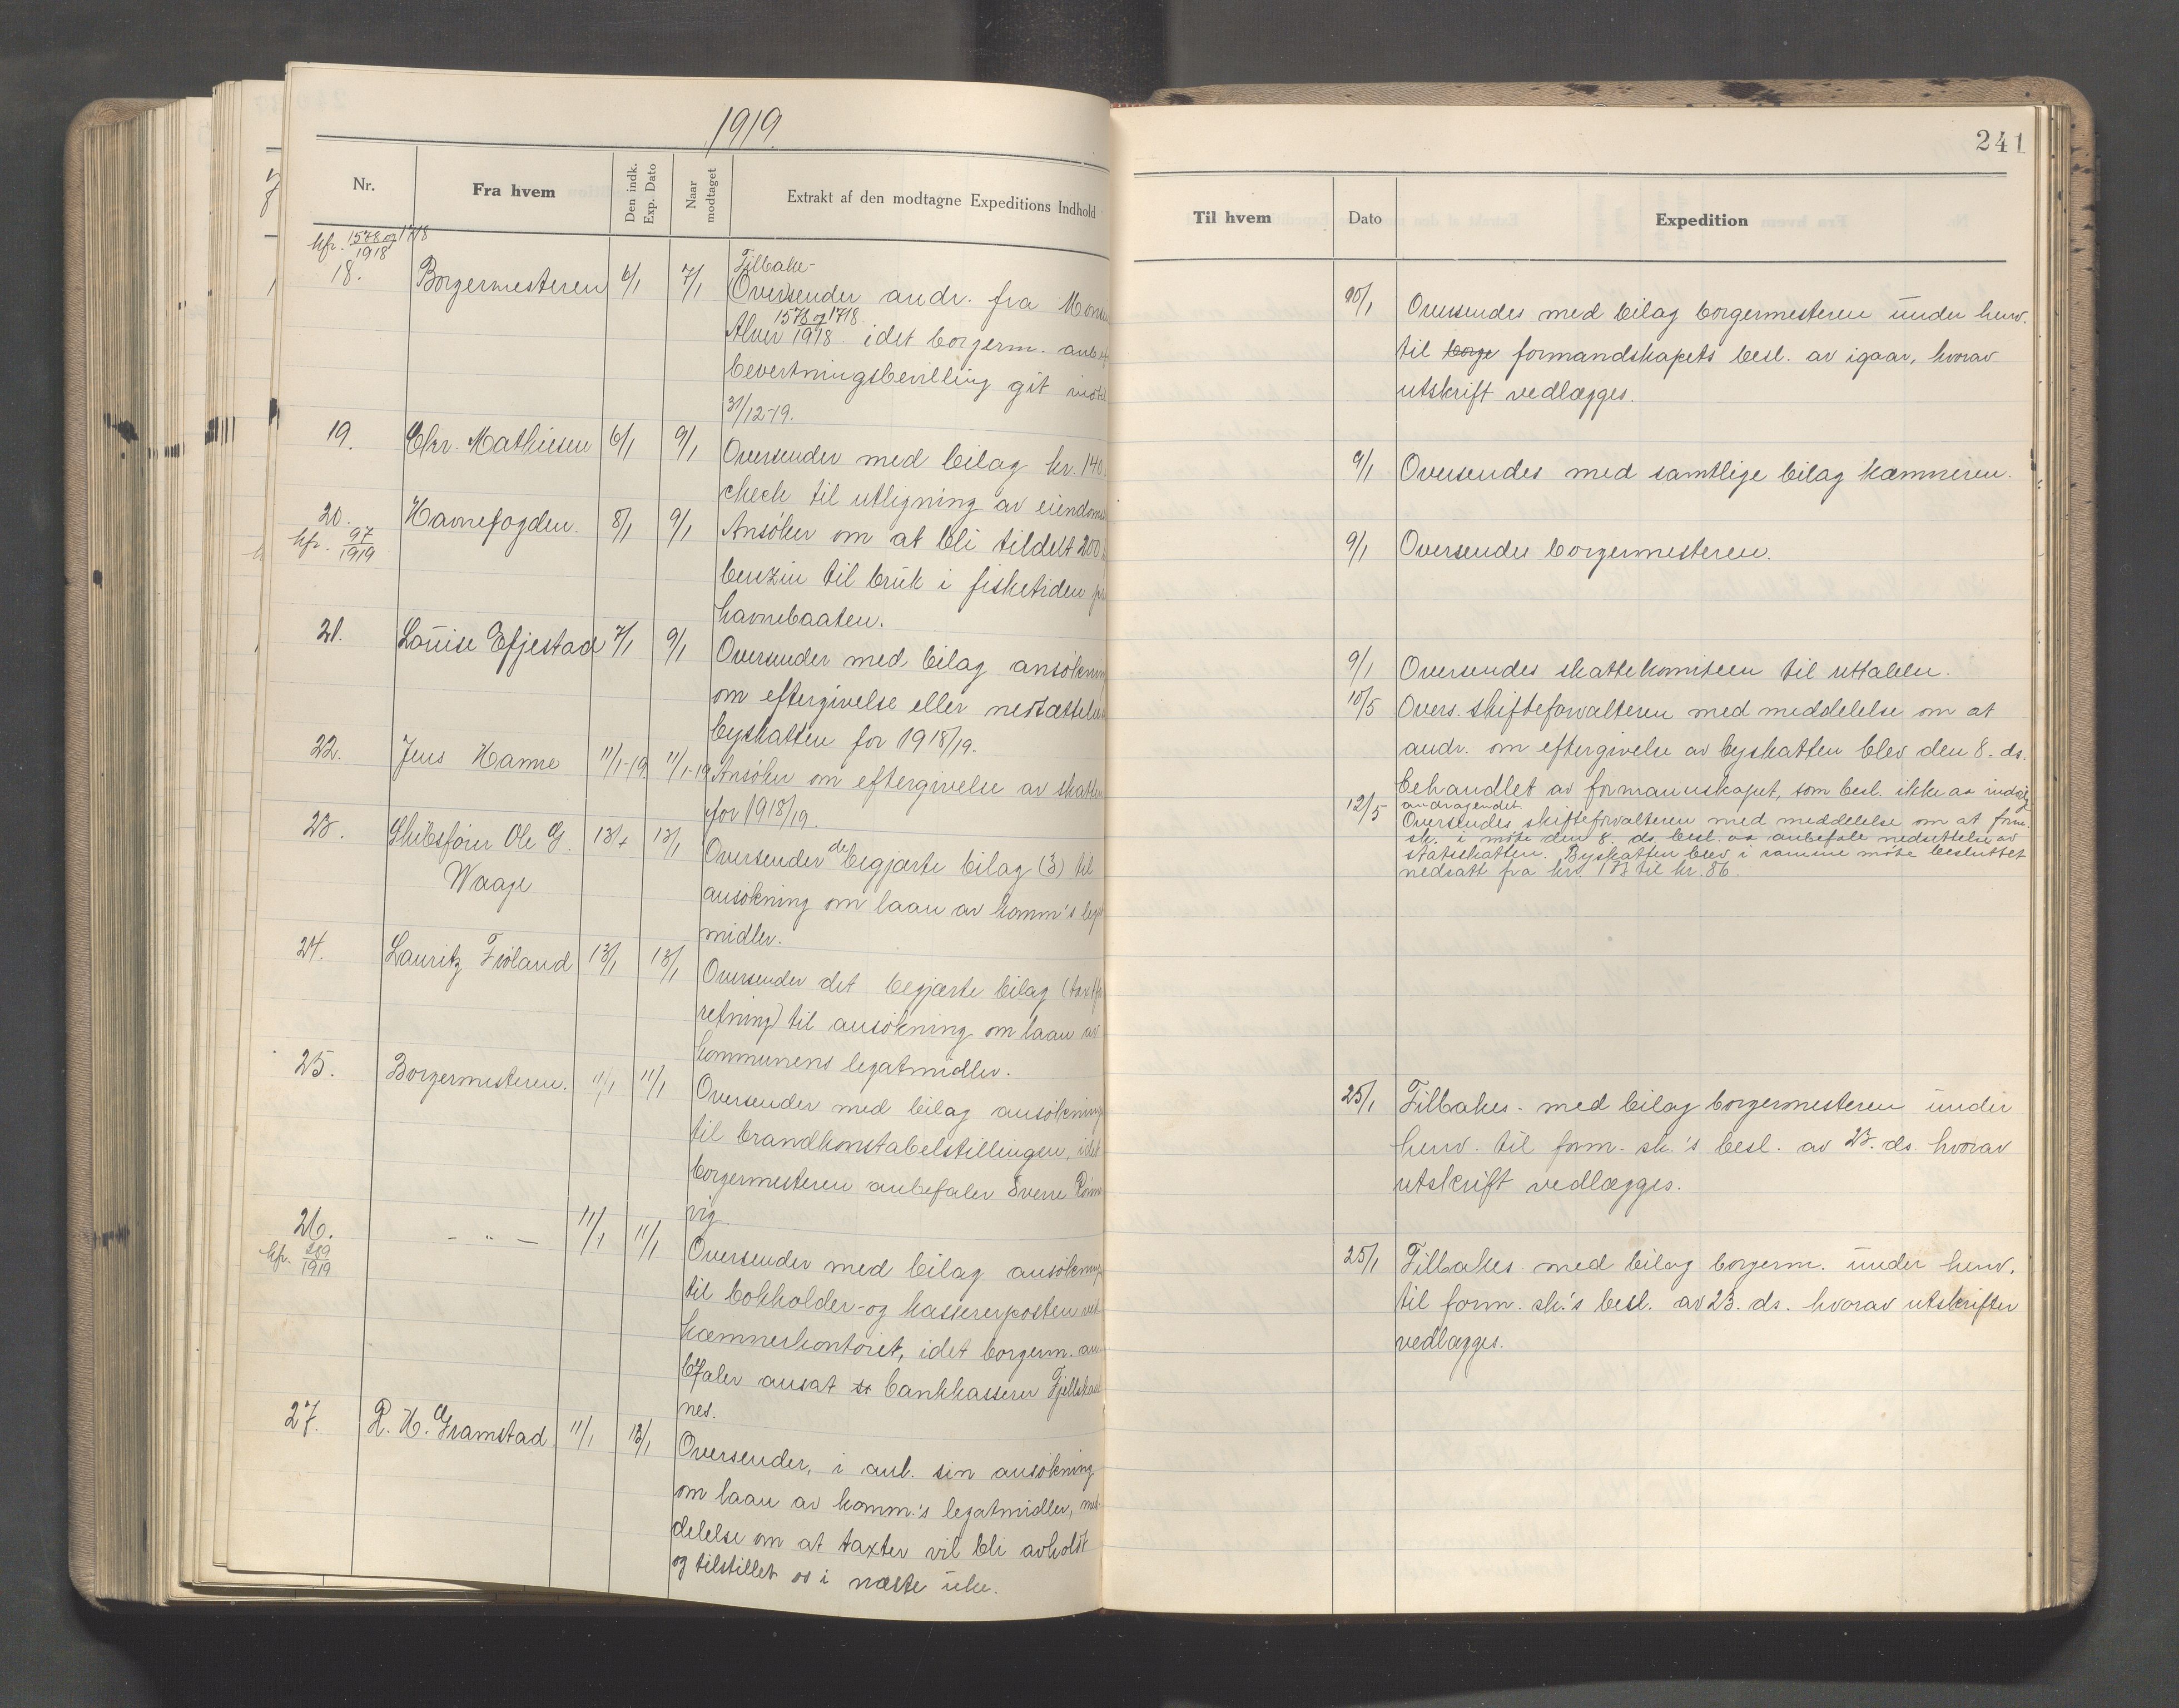 1919.
Nr.
Fra hvem
Den indk. Exp. Dato
Naar modtaget
Extrakt af den modtagne Expeditions Indhold
kfr. 1578 og 1718
1918
18.
Borgermesteren
6/1
7/1
Tilbake-
Oversender andr. fra
1578 og 1718
Alver 1918 idet borgerm.
bevertningsbevilling git
31/12-19.
19.
Chr. Mathiesen
6/1
9/1
Oversender med bilag kr. 140
check til utligning av
20.
kfr. 97
1919
Havnefogden.
8/1
9/1
Ansøker om at bli tildelt 200
benzin til bruk i fisketiden
havnebaaten.
21.
Louise Efjestad
7/1
9/1
Oversender med bilag ansøkning
om eftergivelse eller
byskatten for 1918/19.
22.
Jens Hamre
11/1-19
11/1-19
Ansøker om eftergivelse av skatten
for 1918/19.
23.
Skibsfører Ole G.
Waage
13/1
Oversender de begjærte bilag (3) til
ansøkning om laan av komm's
midler.
24.
Lauritz
13/1
13/1
Oversender det begjærte bilag
retning) til ansøkning om laan av
kommunens legatmidler.
25.
Borgermesteren.
11/1
11/1
Oversender med bilag
til brandkonstabelstillingen, idet
borgermesteren anbefaler Sverre
vig.
26.
kfr. 289
1919
- " -
11/1
11/1
Oversender med bilag
til bokholder- og kassererposten
kæmnerkontoret, idet borgerm. an-
befaler ansat bankkasserer
nes.
27.
P. H. Gramstad
11/1
13/1
Oversender, i anl. sin ansøkning
om laan av komm.'s legatmidler, med-
delelse om at taxter vil bli avholdt
og tilstillet os i næste uke.
241
Til hvem
Dato
Expedition
Oversendes med bilag borgermesteren under henv.
til borge formandskapets besl. av igaar, hvorav
utskrift vedlægges.
9/1
Oversendes med samtlige bilag kæmneren.
9/1
Oversendes borgermesteren.
9/1
Oversendes skattekomiteen til uttalelse.
10/5
Overs. skifteforvalteren med meddelelse om at
andr. om eftergivelse av byskatten blev den 8. ds.
behandlet av formannskapet, som besl. ikke aa
andragendet.
12/5
Oversendes skifteforvalteren med meddelelse om at form.
sk. i møte den 8. ds. besl. aa anbefale nedsettelse av
statsskatten. Byskatten blev i samme møte besluttet
nedsatt fra kr. til kr. 86.
25/1
Tilbakes. med bilag borgermesteren under
henv. til form. sk.'s besl. av 23. ds. hvorav
utskrift vedlægges.
25/1
Tilbakes med bilag borgerm. under henv.
til form. sk.'s besl. av 23. ds. hvorav utskrifter
vedlægges.